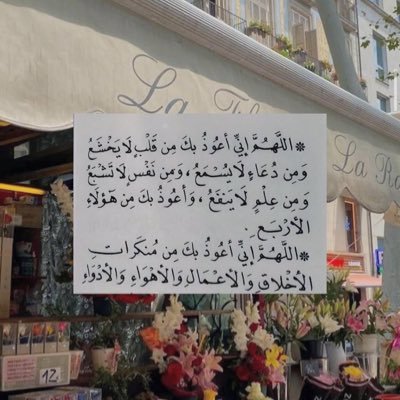 La Fl
La Ra
* اللَّهُمَّ إِنِّي أَعُوذُ بِكَ مِن قَلْبٍ لَا يَخْشَعُ
وَمِن دُعَاءٍ لَا يُسْمَعُ، وَمِن نَفْسٍ لَا تَشْبَعُ
وَمِن عِلْمٍ لَا يَنفَعُ، وَأَعُوذُ بِكَ مِن هَؤُلَاءِ
الأَرْبَعِ.
* اللَّهُمَّ إِنِّي أَعُوذُ بِكَ مِن مُنكَرَاتِ
الأَخْلَاقِ وَالأَعْمَالِ وَالأَهْوَاءِ وَالأَدْوَاءِ
12